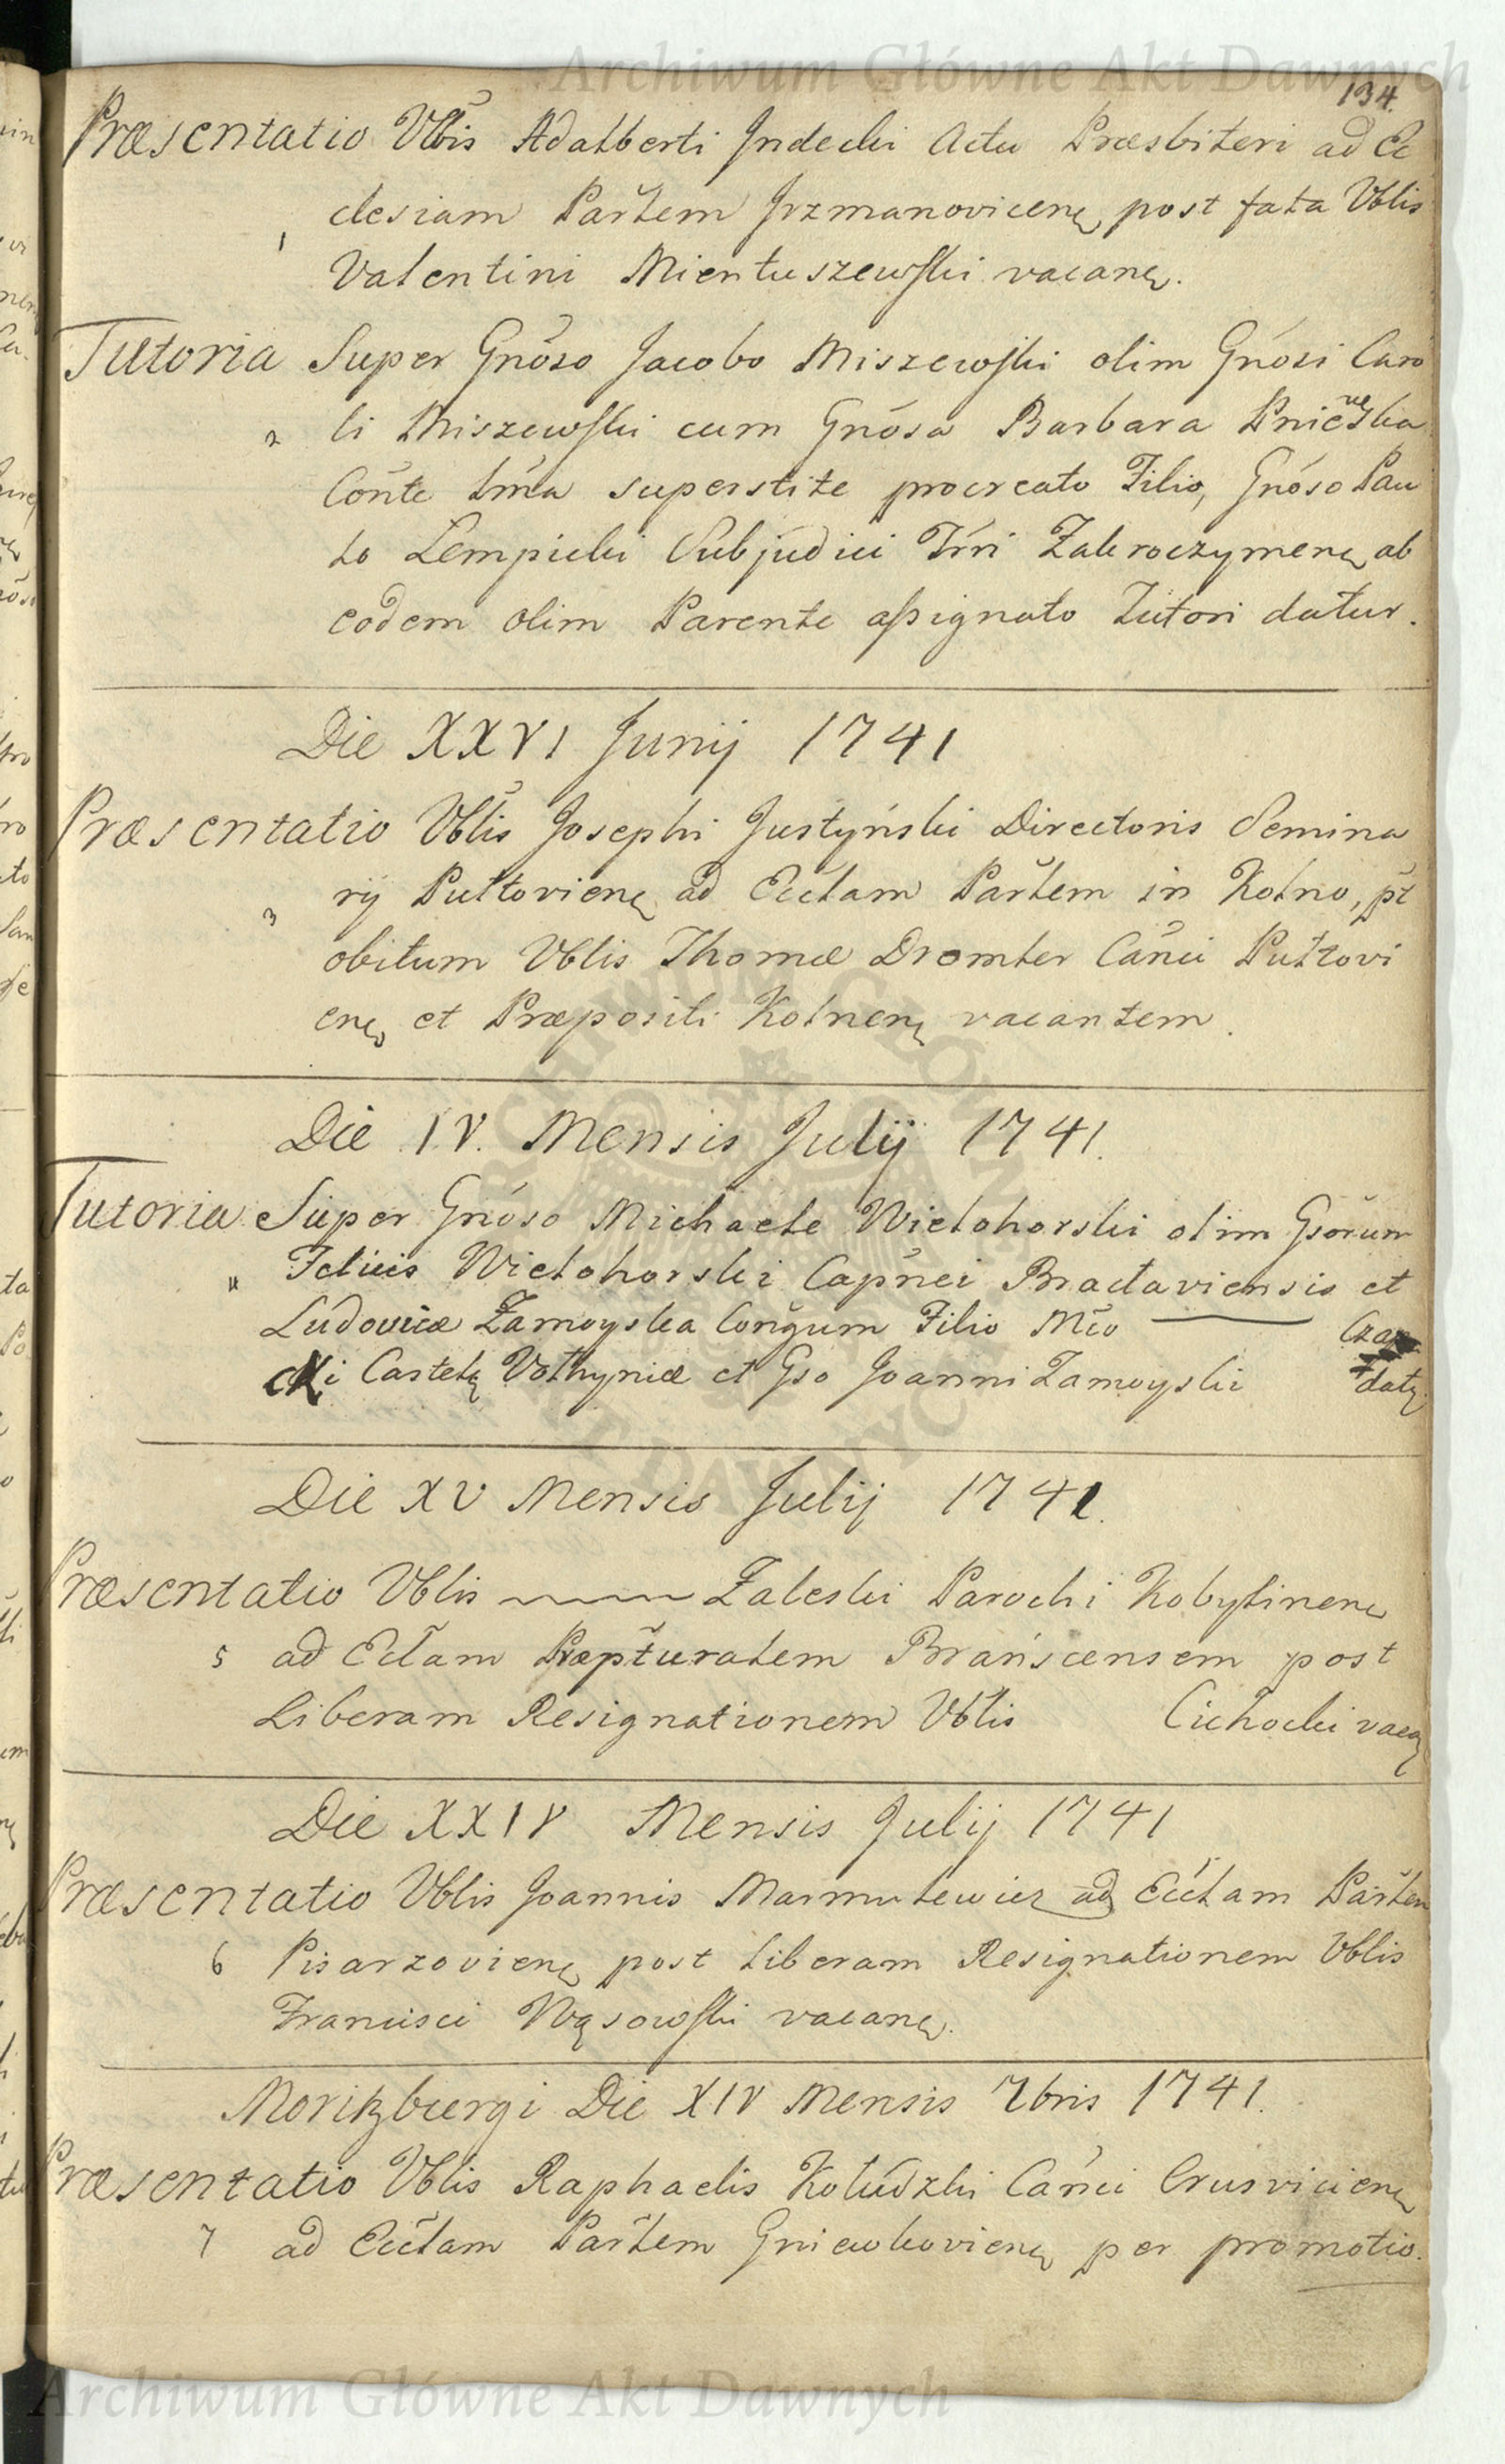 Archiwum Główne Akt Dawnych
134.
Præsentatio Vblis Adalberti Jndecki Actu Præsbiteri ad Ec
clesiam Parlem Jrzmanovicenę post fata Vblis
1 Valentini Mientuszewski vacanę.
Tutoria Super Gnoso Jacobo Miszewski olim Gnosi Caro
2 li Miszewski cum Gnosa Barbara Pniewska
Conte sma superstite procreato Filio, Gnoso Pau
lo Lempicki Subjudici Trri Zakroczymenę ab
eodem olim Parente assignato Tutori datur.
Die XXVI Junij 1741
Præsentatio Vblis Josephi Justyński Directoris Semina
3 rij Pultovienę ad Ecclam Parlem in Kolno, pt
obitum Vblis Thomæ Dromler Canci Pultovi
enę et Præpositi Kolnenę vacantem.
Die IV. Mensis Julij 1741.
Tutoria Super Gnoso Michaele Wielohorski olim Gsorum
4 Felicis Wielohorski Capnei Braclaviensis et
Ludovicæ Zamoyska Conjgum Filio Mco Czar
cki Castelę Volhyniæ et Gso Joanni Zamoyski datę
Die XV Mensis Julij 1741.
Præsentatio Vblis Zaleski Parochi Kobylinenę
5 ad Eclam Præpturalem Brańscensem post
Liberam Resignationem Vblis Cichocki vacaę
Die XXIV Mensis Julij 1741
Præsentatio Vblis Joannis Marmulewicz ad Ecclam Parlem
6 Pisarzovienę post Liberam Resignationem Vblis
Francisci Wąsowski vacanę.
Moritzburgi Die XIV Mensis 7bris 1741.
Præsentatio Vblis Raphaelis Koludzki Canci Crusvicienę
7 ad Ecclam Parlem Gniewkovienę per promotio.
Archiwum Główne Akt Dawnych